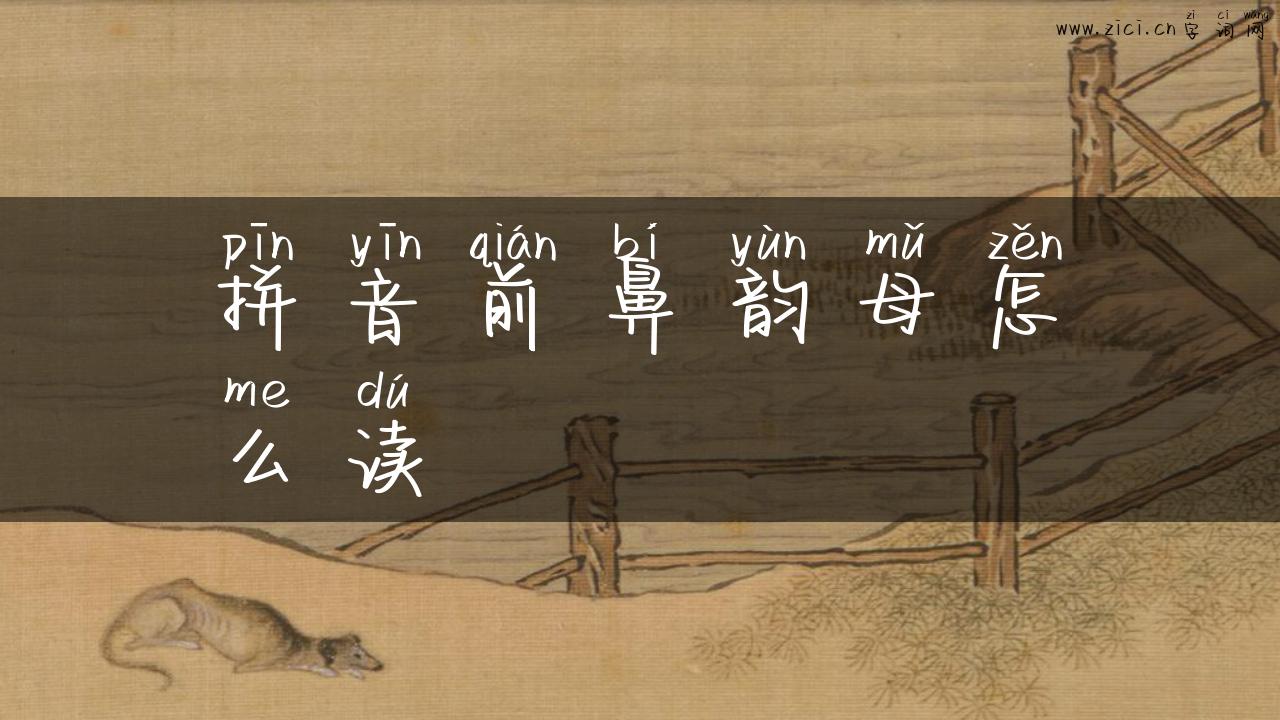 zi ci wang
www.zici.cn字词网
pīn yīn qián bí yùn mǔ zěn
拼音前鼻韵母怎
me dú
么读